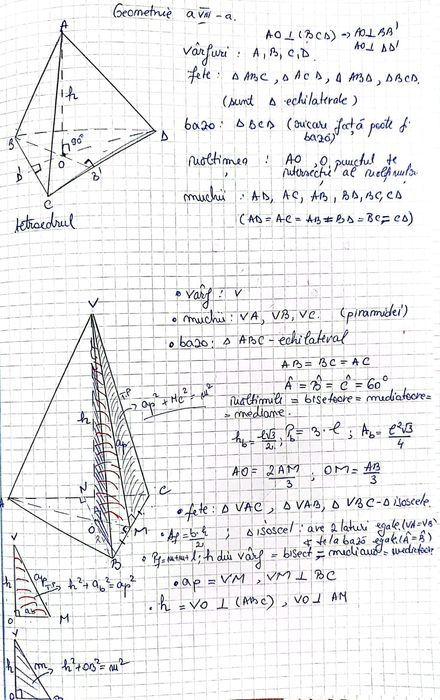 Geometrie a VIII-a.
AO ⊥ (BCD) → AO ⊥ BB'
AO ⊥ DD'
vârfuri : A, B, C, D.
fețe : Δ ABC, Δ ACD, Δ ABD, ΔBCD.
(sunt Δ echilaterale)
baza : Δ BCD (oricare față poate fi
baza)
înălțimea : AO, O punctul de
intersecție al înălțimilor
muchii : AD, AC, AB, BD, BC, CD
(AD = AC = AB = BD = BC = CD)
A
h
B
90°
D
O
D'
B'
C
tetraedrul
• vârf : V
• muchii : VA, VB, VC. (piramidei)
• baza : Δ ABC - echilateral
AB = BC = AC
Â = B̂ = Ĉ = 60°
înălțimile = bisetoare = mediatoare =
= mediane.
h_b = l√3/2 ; P_b = 3·l ; A_b = l²√3/4
AO = 2AM/3 ;
• fețe : Δ VAC, Δ VAB, Δ VBC - isoscele
; Δ isoscel : are 2 laturi egale (VA=VB)
baza egale (Â = B̂)
h din vârf = bisect = mediana = mediatoare
• ap = VM, VM ⊥ BC
• h = VO ⊥ (ABC), VO ⊥ AM
V
T.P
ap² + MC² = m²
h
A
N
C
O
M
B
V
h
ap
h² + a_b² = ap²
O
a_b
M
V
h
m
h² + OB² = m²